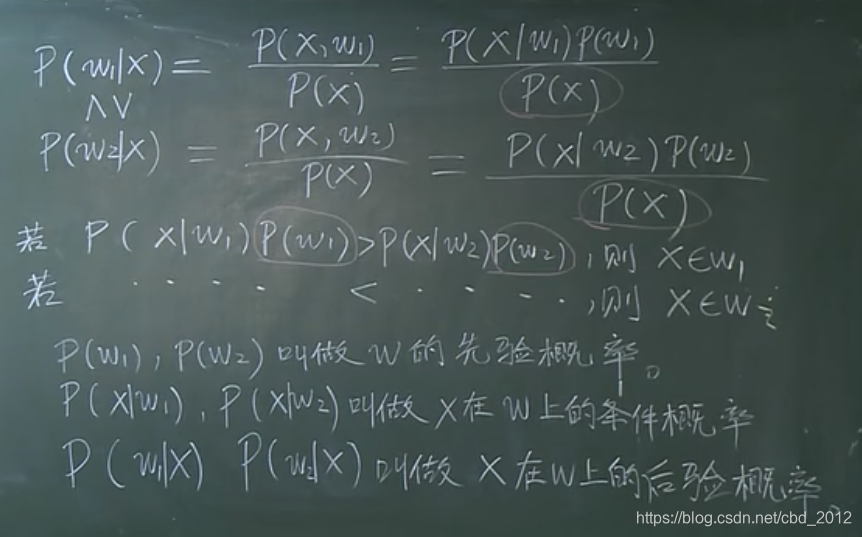 P(w₁|X) = P(X,w₁)/P(X) = P(X|w₁)P(w₁)/P(X)
∧∨
P(w₂|X) = P(X,w₂)/P(X) = P(X|w₂)P(w₂)/P(X)
若 P(X|w₁)P(w₁)>P(X|w₂)P(w₂),则 X∈w₁
若 · · · · < · · · · ,则 X∈w₂
P(w₁),P(w₂)叫做w的先验概率。
P(X|w₁),P(X|w₂)叫做X在w上的条件概率
P(w₁|X) P(w₂|X)叫做X在w上的后验概率。
https://blog.csdn.net/cbd_2012